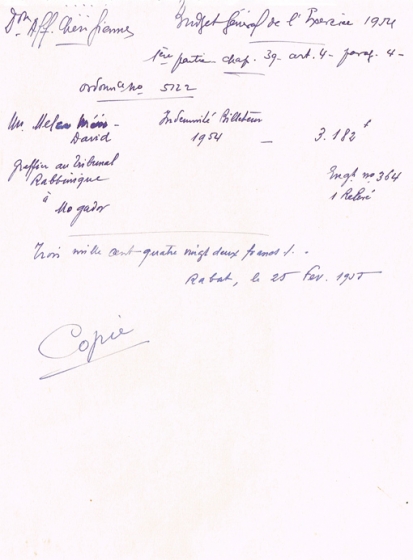 Don Aff. Chérifiennes
Budget Général de l'Exercice 1954
1ère partie chap. 39 art. 4 - parag. 4 -
ordonnce no 5122
Mr. Melca Méir - Indemnité Billeteur
David 1954 — 3.182 f
greffier au Tribunal
Rabbinique Engt. no 364
à 1 Relevé
Mogador
Trois mille cent quatre vingt deux francs /. -
Rabat, le 25 Fev. 1955
Copie